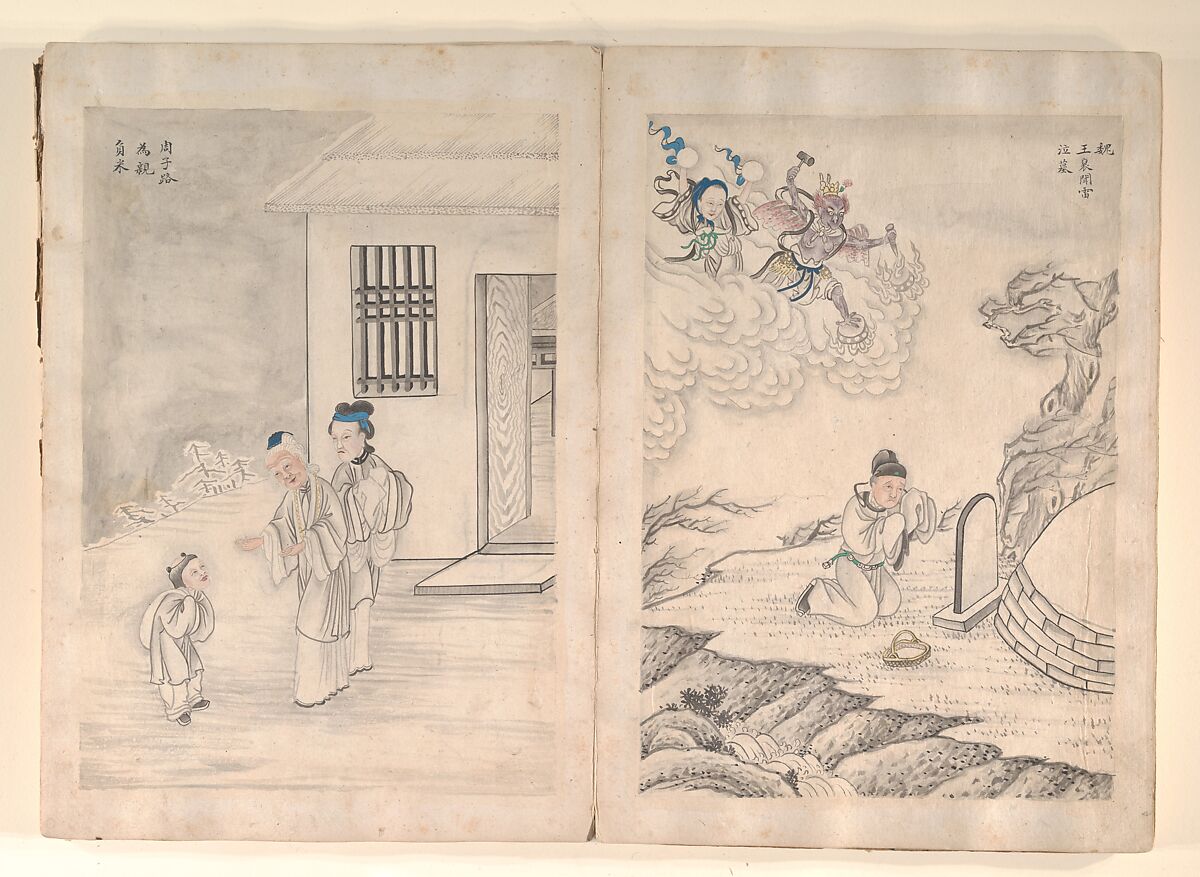 魏
王裒聞雷
泣墓
周子路
為親
負米